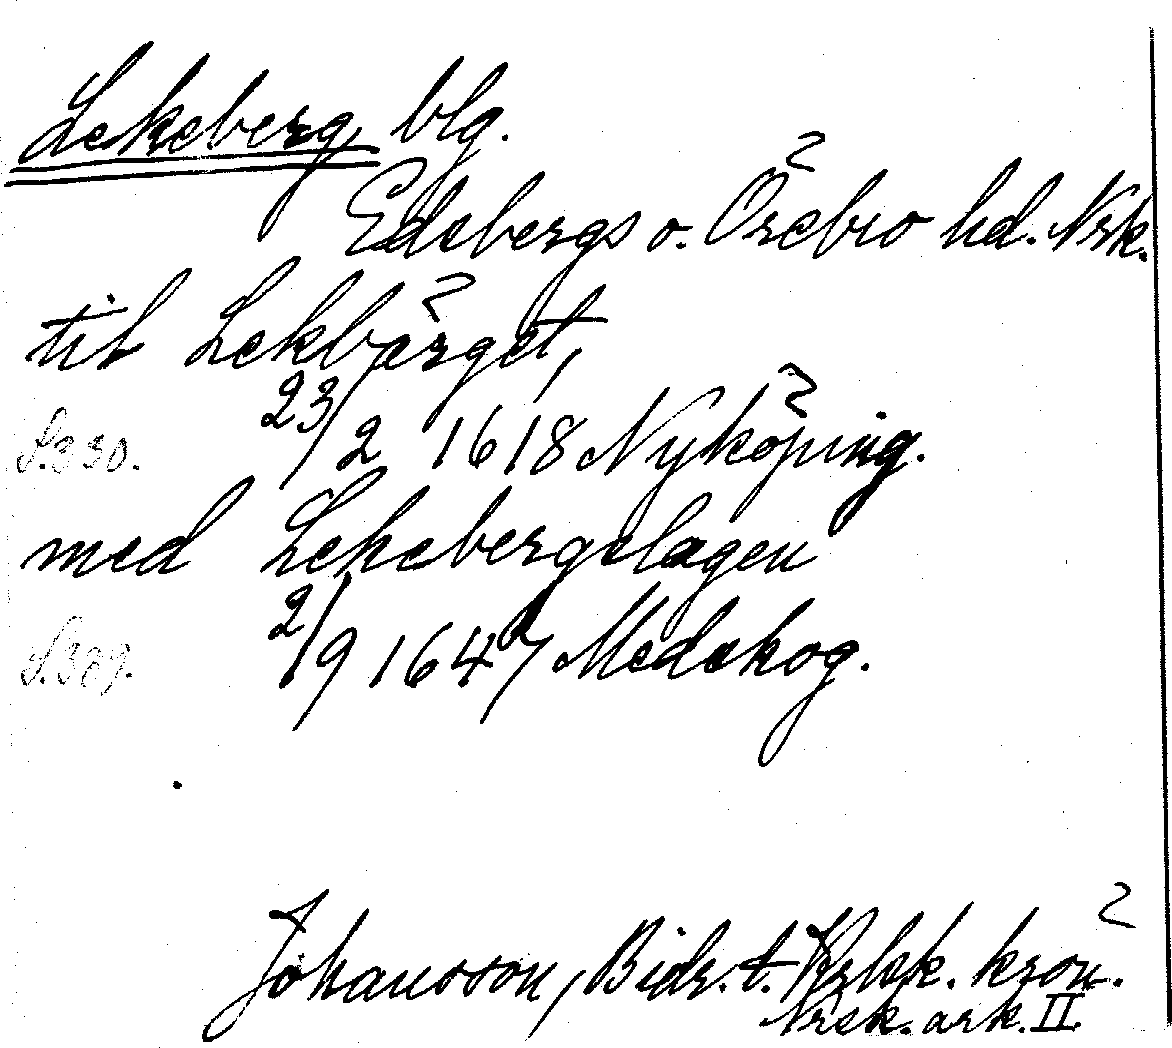 Lekeberg blg.
Edsbergs o. Örebro hd. Nrk.
till Lekbärget,
S.330. 23/2 1618 Nyköping.
med Lekebergslagen
S.389. 2/9 1647 Medskog.
Johansson, Bidr. t. Nrkk. kron.
Nrsk. ark. II.